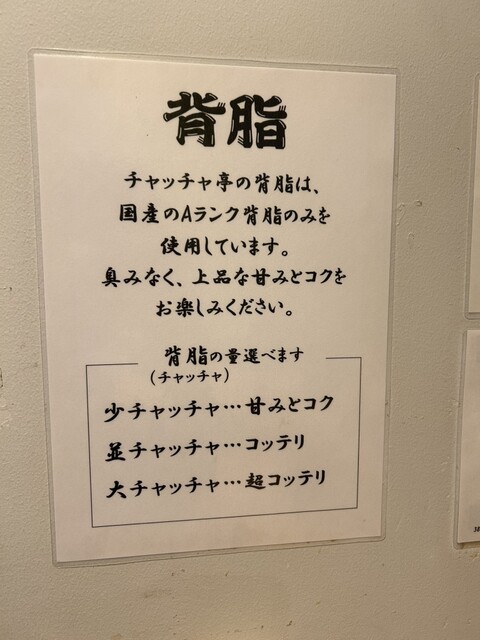 背脂
チャッチャ亭の背脂は、
国産のAランク背脂のみを
使用しています。
臭みなく、上品な甘みとコクを
お楽しみください。
背脂の量選べます
(チャッチャ)
少チャッチャ…甘みとコク
並チャッチャ…コッテリ
大チャッチャ…超コッテリ